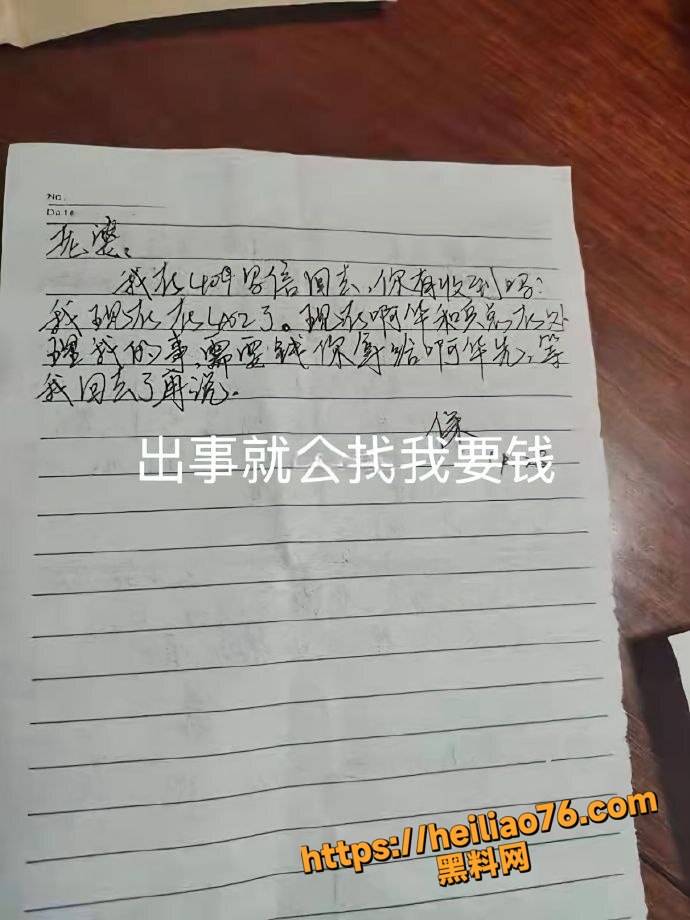 No.
Date
老婆：
我在409写信回去，你有收到吗？
我现在在402了。现在啊华和吴总在处
理我的事，需要钱你拿给啊华先，等
我回去了再说。
保
出事就会找我要钱
https://heiliao76.com
黑料网